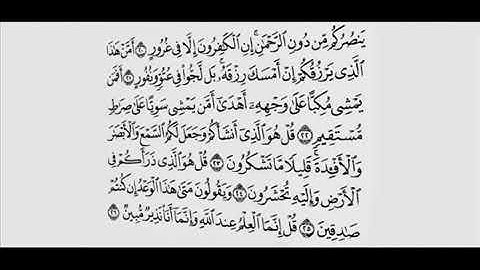 يَنصُرُكُم مِّن دُونِ ٱلرَّحْمَـٰنِ ۚ إِنِ ٱلْكَـٰفِرُونَ إِلَّا فِى غُرُورٍ ٢٠ أَمَّنْ هَـٰذَا
ٱلَّذِى يَرْزُقُكُمْ إِنْ أَمْسَكَ رِزْقَهُۥ ۚ بَل لَّجُّوا۟ فِى عُتُوٍّ وَنُفُورٍ ٢١ أَفَمَن
يَمْشِى مُكِبًّا عَلَىٰ وَجْهِهِۦٓ أَهْدَىٰٓ أَمَّن يَمْشِى سَوِيًّا عَلَىٰ صِرَٰطٍ
مُّسْتَقِيمٍ ٢٢ قُلْ هُوَ ٱلَّذِىٓ أَنشَأَكُمْ وَجَعَلَ لَكُمُ ٱلسَّمْعَ وَٱلْأَبْصَـٰرَ
وَٱلْأَفْـِٔدَةَ ۖ قَلِيلًا مَّا تَشْكُرُونَ ٢٣ قُلْ هُوَ ٱلَّذِى ذَرَأَكُمْ فِى
ٱلْأَرْضِ وَإِلَيْهِ تُحْشَرُونَ ٢٤ وَيَقُولُونَ مَتَىٰ هَـٰذَا ٱلْوَعْدُ إِن كُنتُمْ
صَـٰدِقِينَ ٢٥ قُلْ إِنَّمَا ٱلْعِلْمُ عِندَ ٱللَّهِ وَإِنَّمَآ أَنَا۠ نَذِيرٌ مُّبِينٌ ٢٦